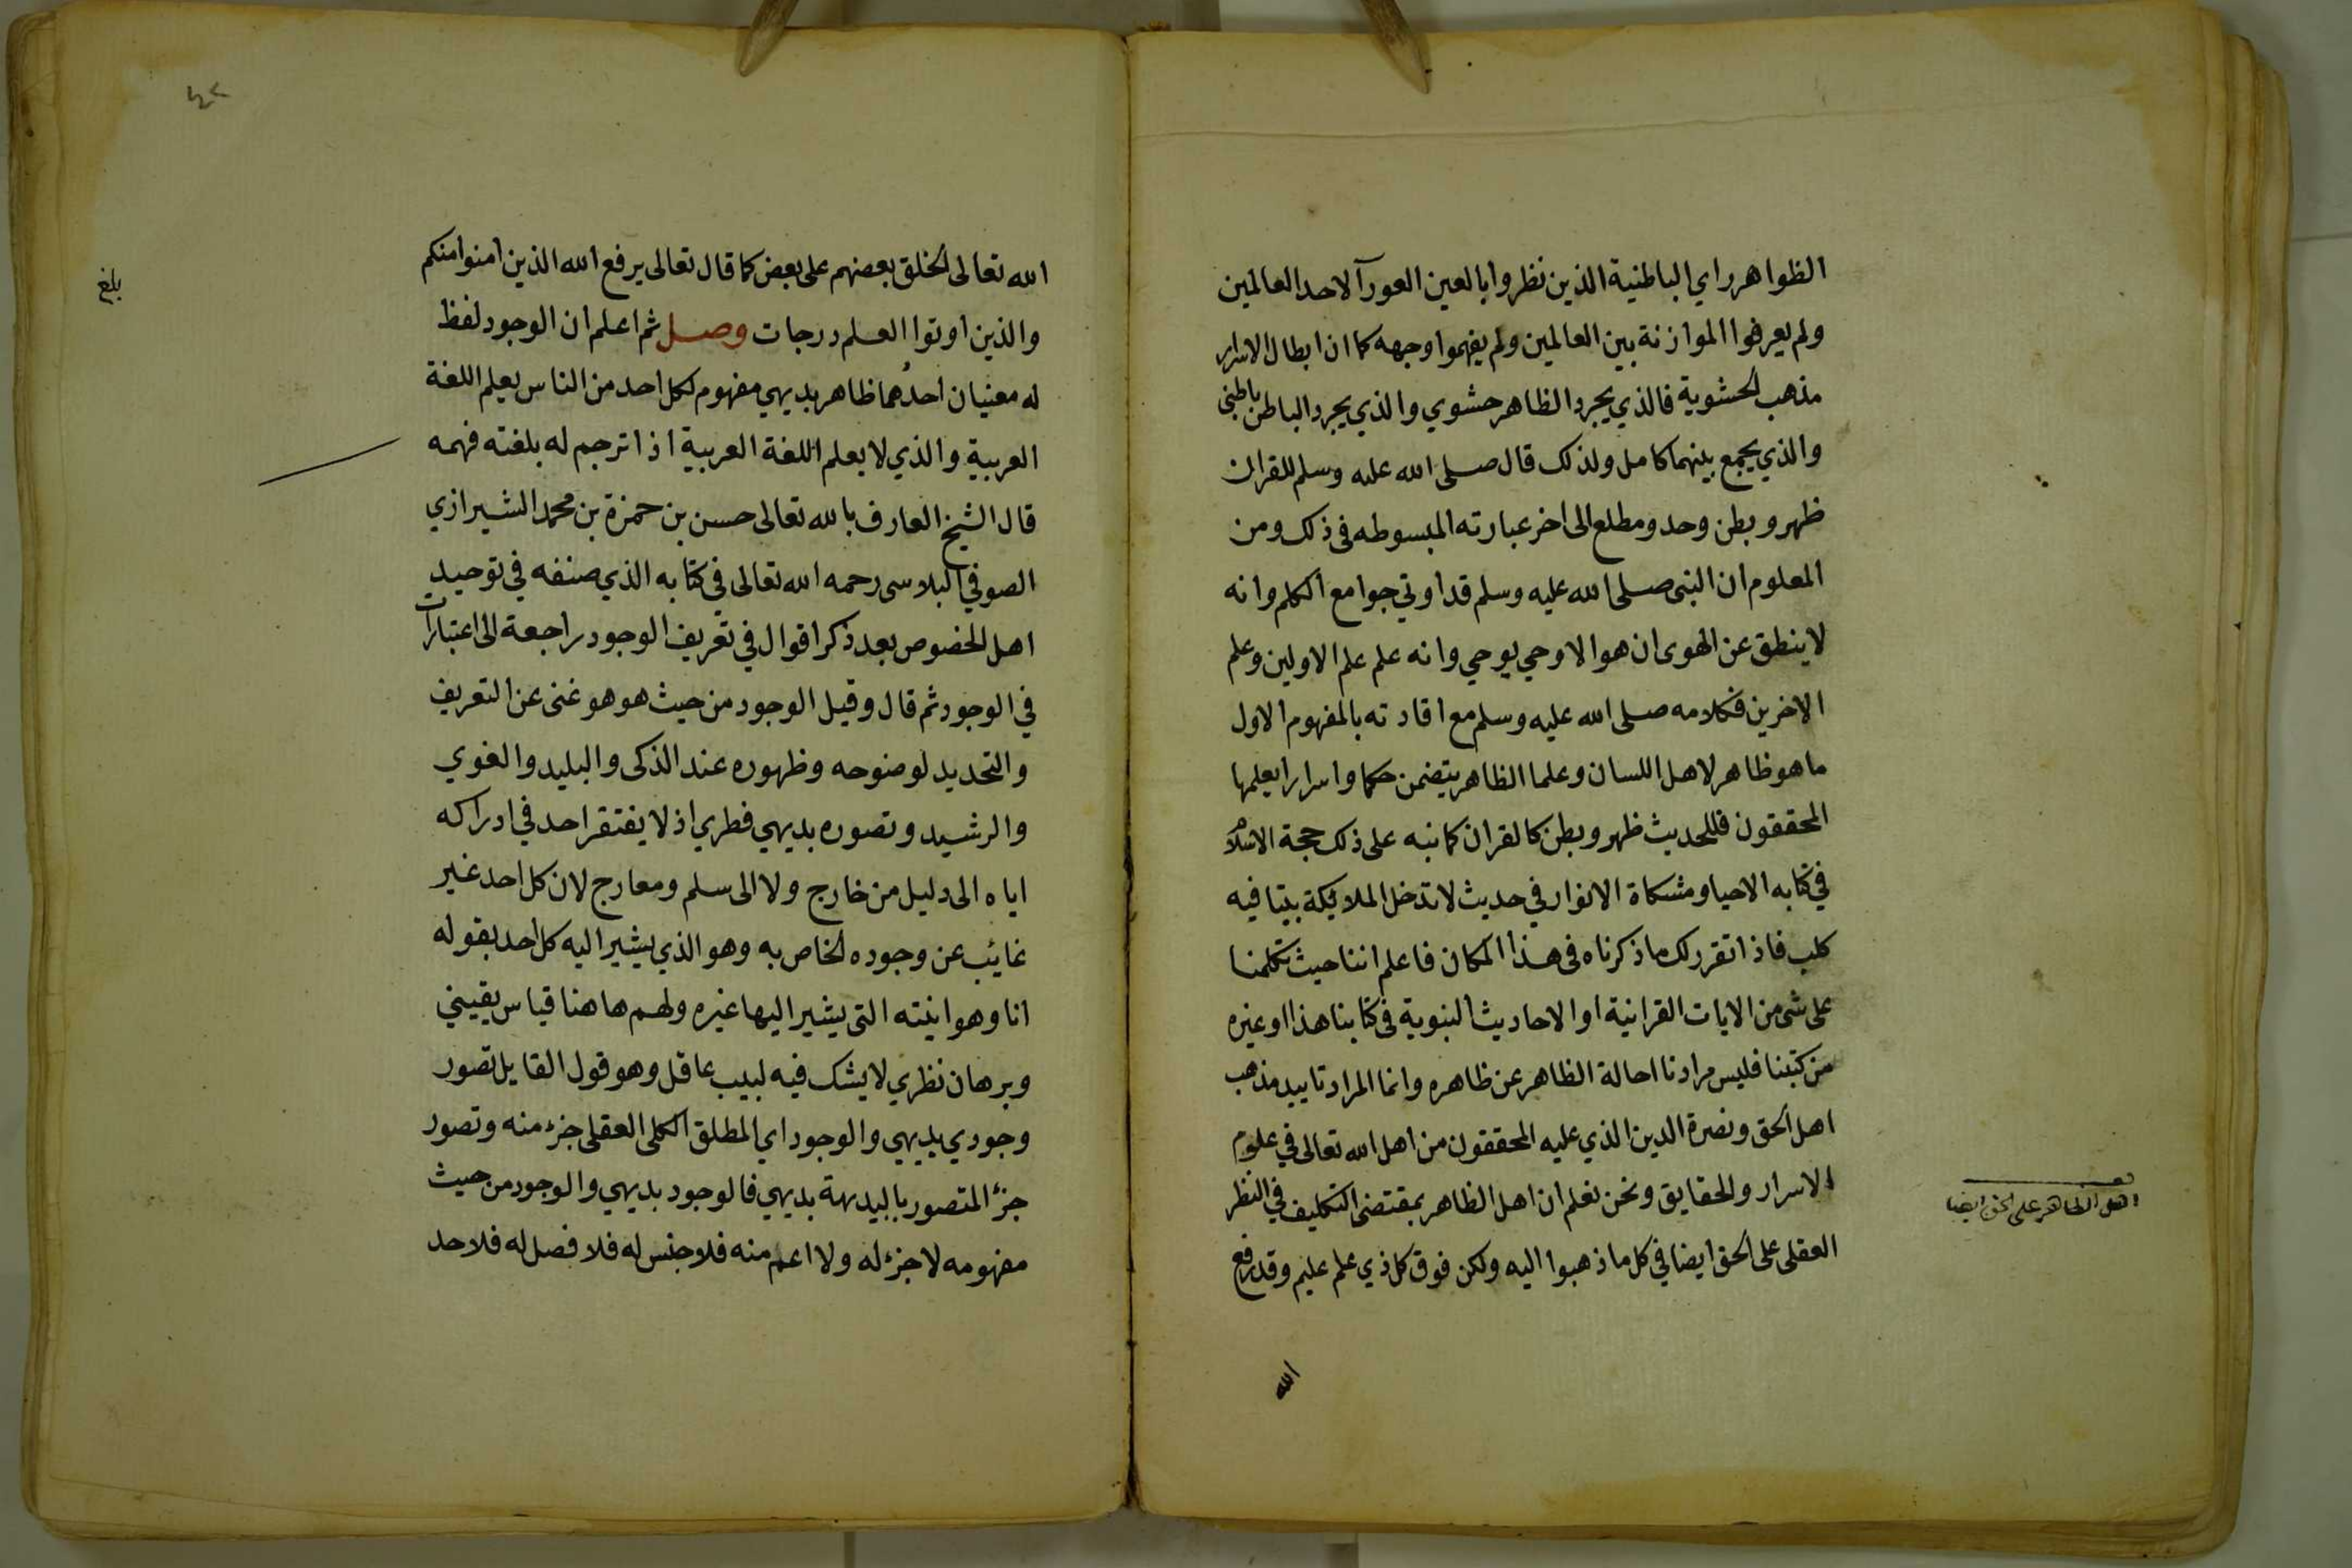 الظواهر راي الباطنية الذين نظروا بالعين العورآ لاحد العالمين
ولم يعرفوا الموازنة بين العالمين ولم يفهموا وجهه كما ان ابطال الاسرار
مذهب الحشوية فالذي يجرد الظاهر حشوي والذي يجرد الباطن باطني
والذي يجمع بينهما كامل ولذلك قال صلى الله عليه وسلم للقران
ظهر وبطن وحد ومطلع الى اخر عبارته المبسوطه في ذلك ومن
المعلوم ان النبي صلى الله عليه وسلم قد اوتي جوامع الكلم وانه
لا ينطق عن الهوى ان هو الا وحي يوحي وانه علم علم الاولين وعلم
الاخرين فكلامه صلى الله عليه وسلم مع افادته بالمفهوم الاول
ما هو ظاهر لاهل اللسان وعلما الظاهر يتضمن حكما واسرارا يعلمها
المحققون فللحديث ظهر وبطن كالقران كما نبه على ذلك حجة الاسلام
في كتابه الاحيا ومشكاة الانوار في حديث لا تدخل الملائكة بيتا فيه
كلب فاذا تقرر لك ما ذكرناه في هذا المكان فاعلم اننا حيث تكلمنا
على شي من الايات القرانية او الاحاديث النبوية في كتابنا هذا او غيره
من كتبنا فليس مرادنا احالة الظاهر عن ظاهره وانما المراد تاييد مذهب
اهل الحق ونصرة الدين الذي عليه المحققون من اهل الله تعالى في علوم
الاسرار والحقايق ونحن نعلم ان اهل الظاهر بمقتضى التكليف في النظر
العقلي على الحق ايضا في كل ما ذهبوا اليه ولكن فوق كل ذي علم عليم وقد رفع
الله
اهل الظاهر على الحق ايضا
٤٢
بلغ
الله تعالى الخلق بعضهم على بعض كما قال تعالى يرفع الله الذين امنوا منكم
والذين اوتوا العلم درجات وصل ثم اعلم ان الوجود لفظ
له معنيان احدُهما ظاهر بديهي مفهوم لكل احد من الناس يعلم اللغة
العربية والذي لا يعلم اللغة العربية اذا ترجم له بلغته فهمه
قال الشيخ العارف بالله تعالى حسن بن حمزة بن محمد الشيرازي
الصوفي البلاسي رحمه الله تعالى في كتابه الذي صنفه في توحيد
اهل الخصوص بعد ذكر اقوال في تعريف الوجود راجعة الى اعتبارات
في الوجود ثم قال وقيل الوجود من حيث هو هو غني عن التعريف
والتحديد لوضوحه وظهوره عند الذكي والبليد والغوي
والرشيد وتصوره بديهي فطري اذ لا يفتقر احد في ادراكه
اياه الى دليل من خارج ولا الى سلم ومعارج لان كل احد غير
غائب عن وجوده الخاص به وهو الذي يشير اليه كل احد بقوله
انا وهو انيته التي يشير اليها غيره ولهم هاهنا قياس يقييني
وبرهان نظري لا يشك فيه لبيب عاقل وهو قول القايل تصور
وجودي بديهي والوجود اي المطلق الكلي العقلي جزء منه وتصور
جزء المتصور بالبديهة بديهي فالوجود بديهي والوجود من حيث
مفهومه لا جزء له ولا اعم منه فلا جنس له فلا فصل له فلا حد